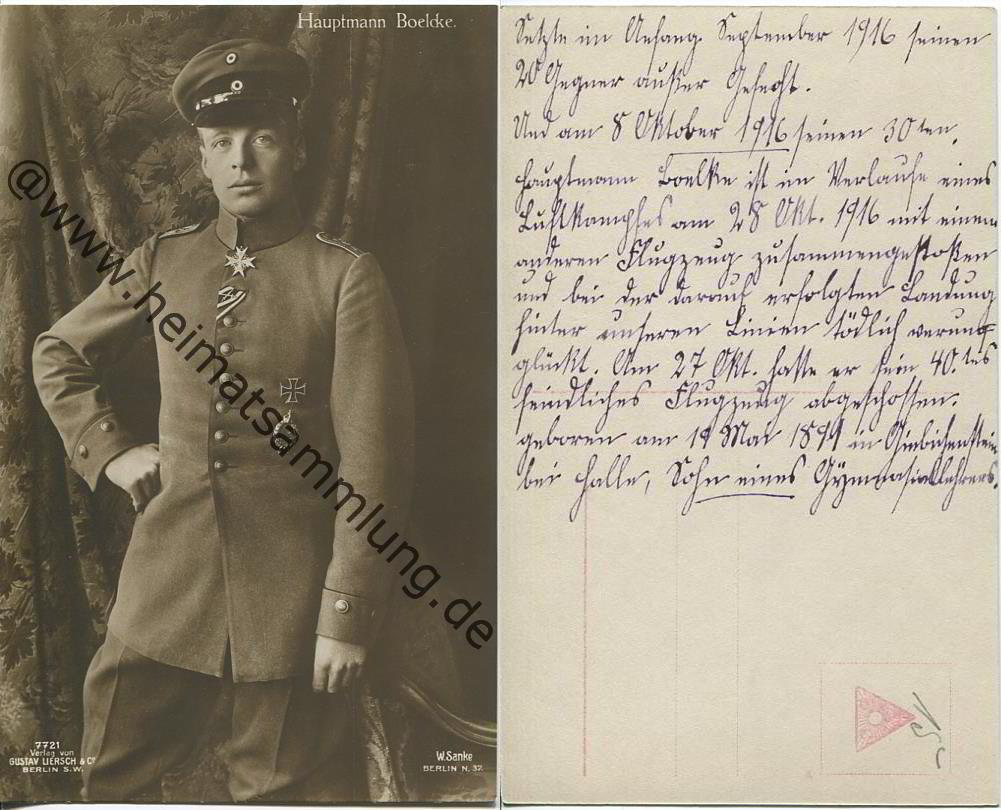 Hauptmann Boelcke.
@www.heimatsammlung.de
7721
Verlag von
GUSTAV LIERSCH & Co
BERLIN S.W.
W. Sanke
BERLIN N. 37.
Setzte im Anfang September 1916 seinen
20 Gegner außer Gefecht.
Und am 8 Oktober 1916 seinen 30ten.
Hauptmann Boelke ist im Verlaufe eines
Luftkampfes am 28 Okt. 1916 mit einem
anderen Flugzeug zusammengestoßen
und bei der darauf erfolgten Landung
hinter unseren Linien tödlich verun-
glückt. Am 27 Okt. hatte er sein 40.tes
feindliches Flugzeug abgeschossen.
geboren am 19 Mai 1891 in Giebichenstein
bei Halle, Sohn eines Gymnasiallehrers.